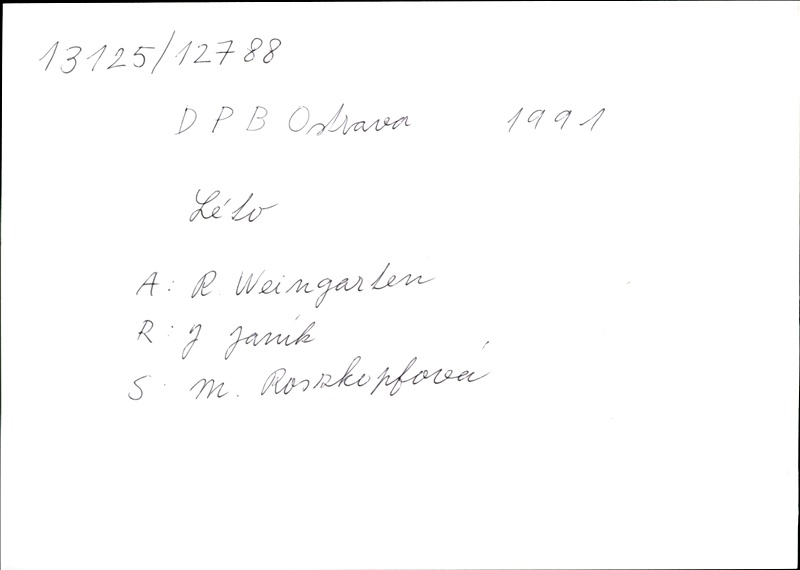 13125/12788
D P B Ostrava 1991
Léto
A: R. Weingarten
R: J Janík
S: M. Roszkopfová